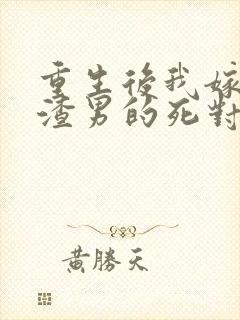 重生後我嫁
渣男的死對
黃勝天